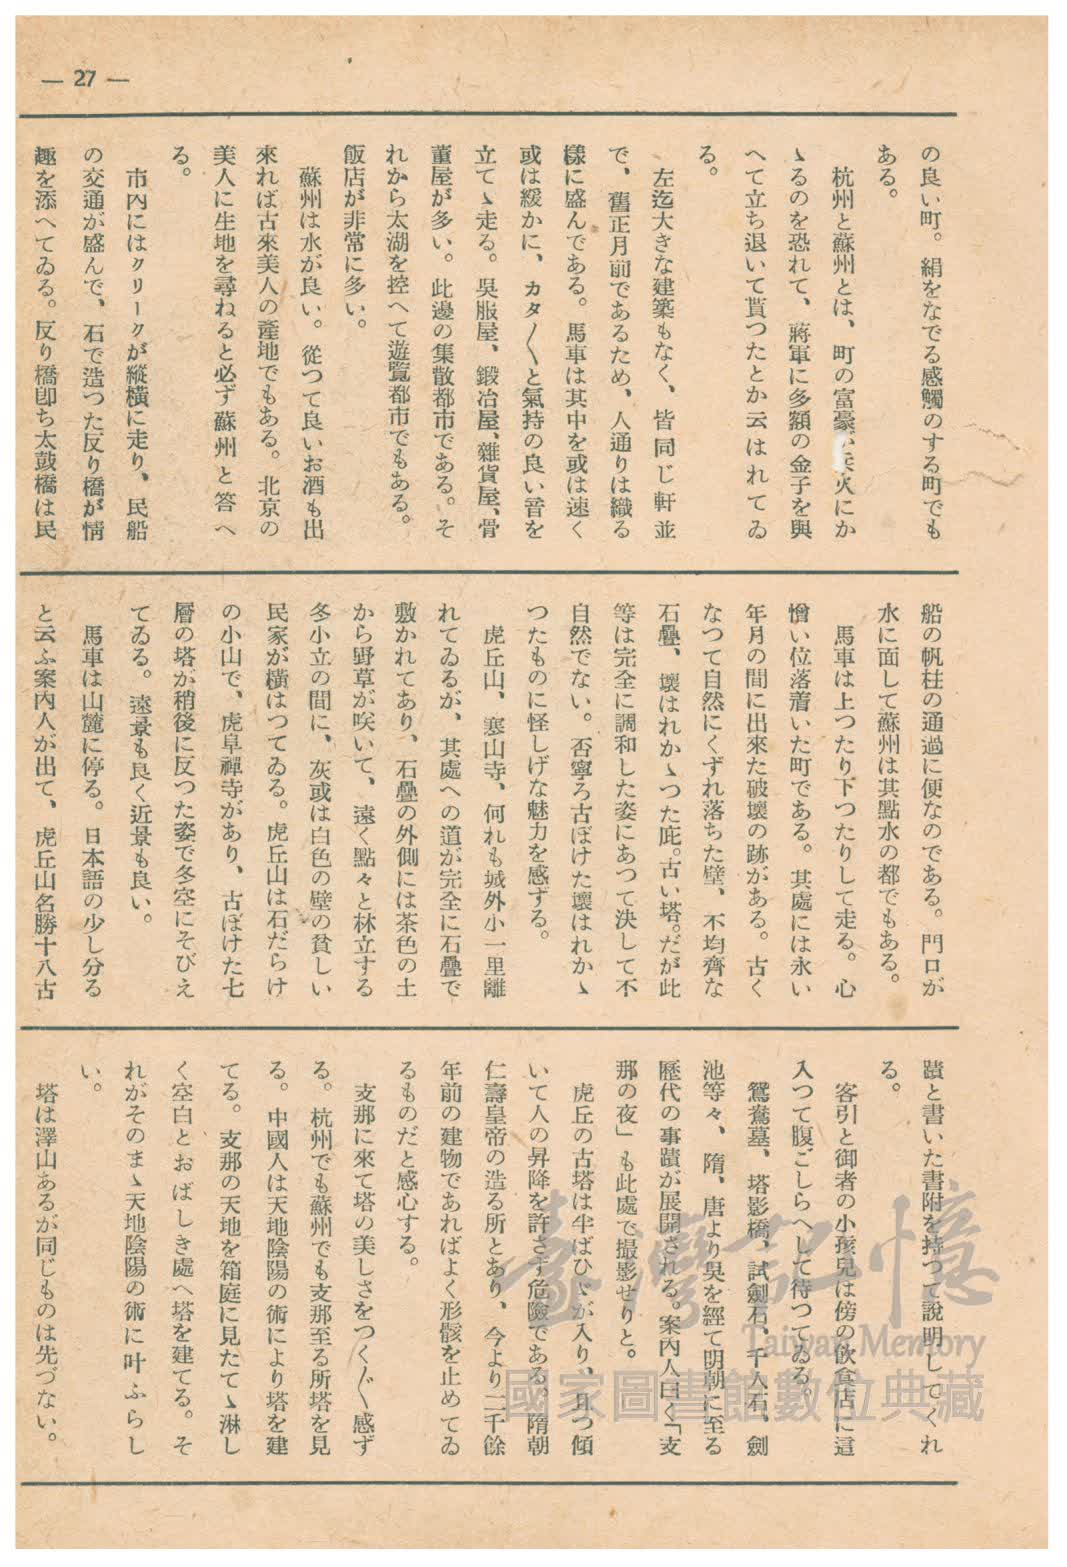 — 27 —
の良い町。絹をなでる感觸のする町でも
ある。
杭州と蘇州とは、町の富豪 火にか
ゝるのを恐れて、蔣軍に多額の金子を與
へて立ち退いて貰つたとか云はれてゐ
る。
左迄大きな建築もなく、皆同じ軒並
で、舊正月前であるため、人通りは織る
樣に盛んである。馬車は其中を或は速く
或は緩かに、カタ〱と氣持の良い音を
立てゝ走る。吳服屋、鍛冶屋、雜貨屋、骨
董屋が多い。此邊の集散都市である。そ
れから太湖を控へて遊覽都市でもある。
飯店が非常に多い。
蘇州は水が良い。從つて良いお酒も出
來れば古來美人の產地でもある。北京の
美人に生地を尋ねると必ず蘇州と答へ
る。
市內にはクリークが縱橫に走り、民船
の交通が盛んで、石で造つた反り橋が情
趣を添へてゐる。反り橋卽ち太鼓橋は民
船の帆柱の通過に便なのである。門口が
水に面して蘇州は其點水の都でもある。
馬車は上つたり下つたりして走る。心
憎い位落着いた町である。其處には永い
年月の間に出來た破壞の跡がある。古く
なつて自然にくずれ落ちた壁、不均齊な
石疊、壞はれかゝつた庇。古い塔。だが此
等は完全に調和した姿にあつて決して不
自然でない。否寧ろ古ぼけた壞はれかゝ
つたものに怪しげな魅力を感ずる。
虎丘山、寒山寺、何れも城外小一里離
れてゐるが、其處への道が完全に石疊で
敷かれてあり、石疊の外側には茶色の土
から野草が咲いて、遠く點々と林立する
冬小立の間に、灰或は白色の壁の貧しい
民家が橫はつてゐる。虎丘山は石だらけ
の小山で、虎阜禪寺があり、古ぼけた七
層の塔が稍後に反つた姿で冬空にそびえ
てゐる。遠景も良く近景も良い。
馬車は山麓に停る。日本語の少し分る
と云ふ案內人が出て、虎丘山名勝十八古
蹟と書いた書附を持つて說明してくれ
る。
客引と御者の小孩兒は傍の飮食店に這
入つて腹ごしらへして待つてゐる。
鴛鴦墓、塔影橋、試劍石、千人石、劍
池等々、隋、唐より吳を經て明朝に至る
歷代の事蹟が展開される。案內人曰く「支
那の夜」も此處で撮影せりと。
虎丘の古塔は半ばひゞが入り、且つ傾
いて人の昇降を許さず危險である。隋朝
仁壽皇帝の造る所とあり、今より二千餘
年前の建物であればよく形骸を止めてゐ
るものだと感心する。
支那に來て塔の美しさをつく〲感ず
る。杭州でも蘇州でも支那至る所塔を見
る。中國人は天地陰陽の術により塔を建
てる。支那の天地を箱庭に見たてゝ淋し
く空白とおぼしき處へ塔を建てる。そ
れがそのまゝ天地陰陽の術に叶ふらし
い。
塔は澤山あるが同じものは先づない。
臺灣記憶
Taiwan Memory
國家圖書館數位典藏